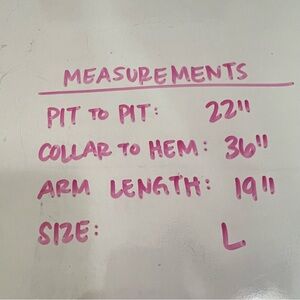 MEASUREMENTS
PIT TO PIT: 22"
COLLAR TO HEM: 36"
ARM LENGTH: 19"
SIZE: L